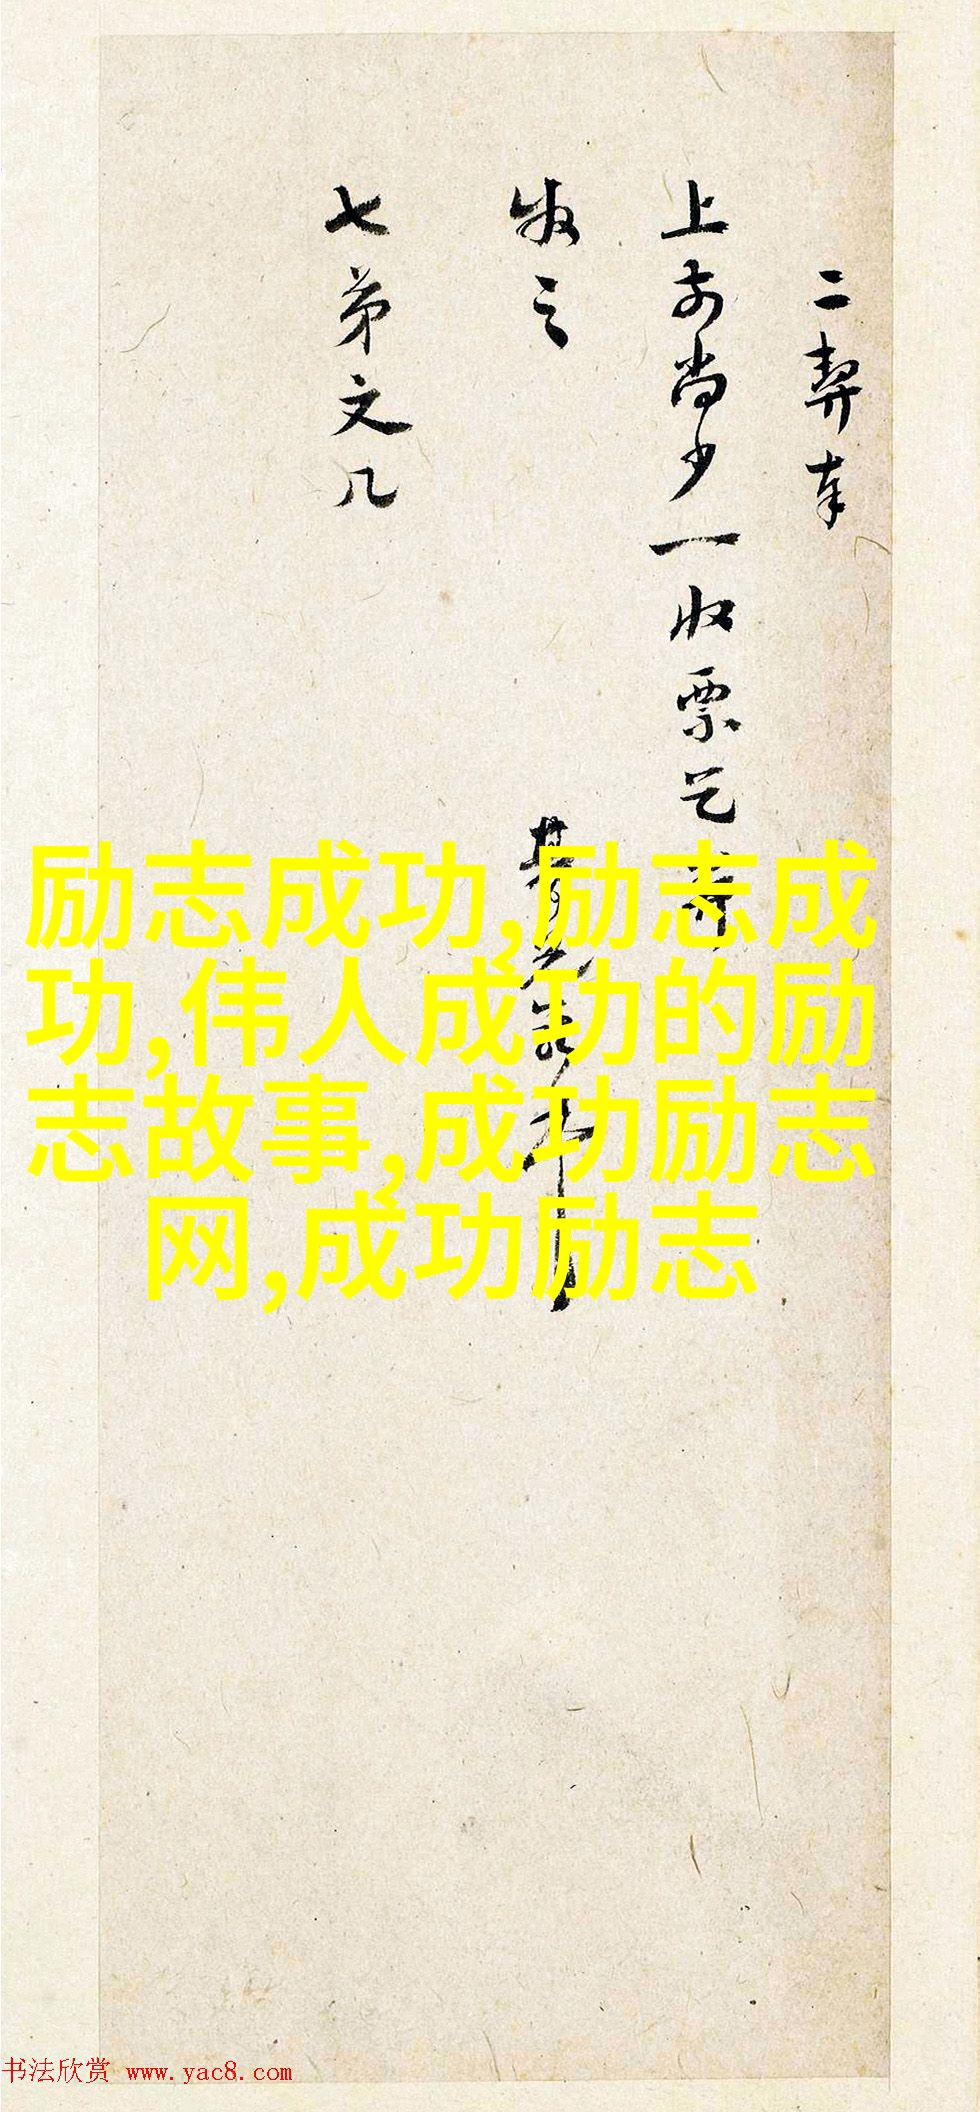 二契奉
上前尚少一收票乞
收之
七弟文几
励志成功,励志成
功,伟人成功的励
志故事,成功励志
网,成功励志
书法欣赏 www.yac8.com